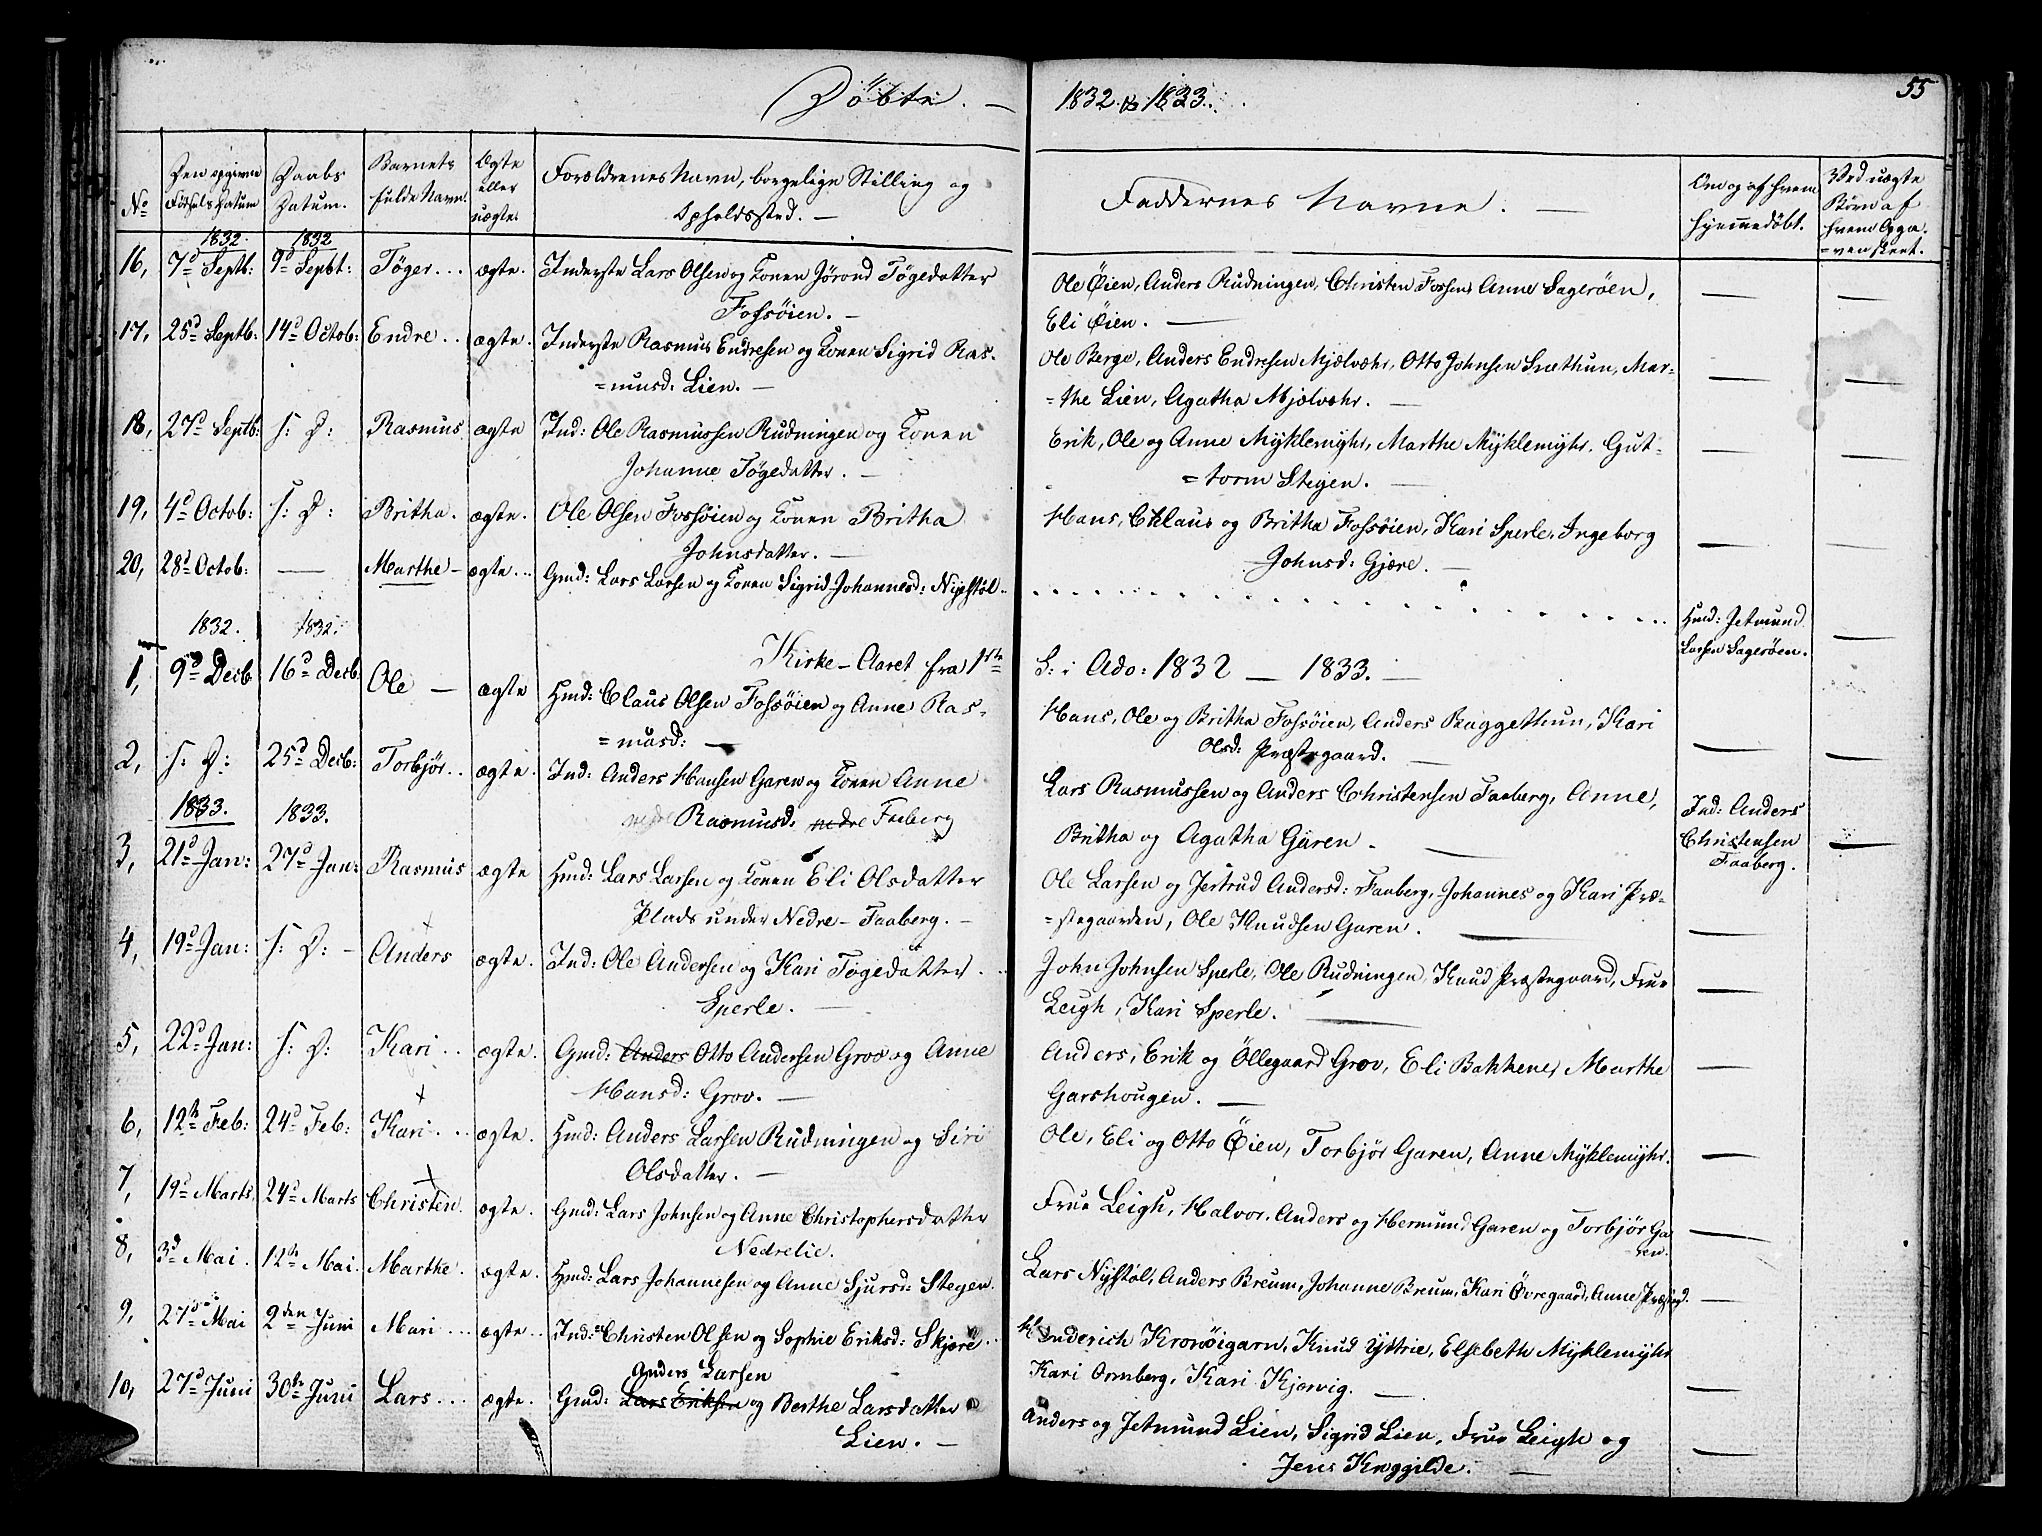 Døbte. — 1832. & 1833.
55
No
Den opgivne Fødsels Datum
Daabs Datum.
Barnets fulde Navn.
Ægte eller uægte.
Forældrenes Navn, borgelige Stilling og Opholdssted. —
Faddernes Navne. —
Om og af hvem hjemmedöbt.
Ved uægte Børn af hvem Opga=ven skeet.
1832. 1832
16, 7d Septb: 9d Septbt: Töger... ægte. Inderste Lars Olsen og Konen Jörond Tögedatter
Fossöien. —
Ole Öien, Anders Rudningen, Christen Fossen, Anne Sageröen,
Eli Öien. —
17, 25d Septb: 14d Octob: Endre.. ægte. Inderste Rasmus Endresen og Konen Sigrid Ras-
=musd: Lien. —
Ole Berge, Anders Endresen Mjelvæhr, Otto Johnsen Snæthun, Mar-
=the Lien, Agatha Mjelvæhr. —
18, 27d Septb: s: D: Rasmus ægte Ind: Ole Rasmussen Rudningen og Konen
Johanne Tögedatter. —
Erik, Ole og Anne Myklemyhr, Marthe Myklemyhr. Gut-
=torm Stegen. —
19, 4d Octob: s: D: Britha. ægte. Ole Olsen Fossöien og Konen Britha
Johnsdatter. —
Hans, Claus og Britha Fossöien, Kari Sperle, Ingeborg
Johnsd: Gjære. —
20, 28d Octob: — Marthe — ægte... Gmd: Lars Larsen og Konen Sigrid Johannesd: Nystöl..
Hmd: Jetmund
Larsen Sageröen.
1832. 1832.
Kirke-Aaret fra 1ste
S: i Adv: 1832 — 1833. —
1, 9d Decb 16d Decb: Ole — ægte Hmd: Claus Olsen Fossöien og Anne Ras-
=musd: —
Hans, Ole og Britha Fossöien, Anders Baggethun, Kari
Olsd: Præstegaard. —
2, s: D: 25d Decb: Torbjör.. ægte. Ind: Anders Hansen Garen og Konen Anne
nedre Rasmusd: nedre Faaberg
Lars Rasmussen og Anders Christensen Faaberg, Anne,
Britha og Agatha Garen. —
Ind: Anders
Christensen
Faaberg.
1833. 1833.
3, 21d Jan: 27d Jan: Rasmus ægte Hmd: Lars Larsen og Konen Eli Olsdatter
Plads under Nedre-Faaberg. —
Ole Larsen og Jertrud Andersd: Faaberg, Johannes og Kari Præ-
=stegaarden, Ole Knudsen Garen. —
4, 19d Jan: s: D: — Anders ægte. Ind: Ole Andersen og Kari Tögedatter...
Sperle. —
John Johnsen Sperle, Ole Rudningen, Knud Præstegaard, Frue
Leigh, Kari Sperle. —
5, 22d Jan: s: D: Kari.. ægte. Gmd: Anders Otto Andersen Grov og Anne
Hansd: Grov. —
Anders, Erik og Öllegaard Grov, Eli Bakkene, Marthe
Garshougen. —
6, 12te Feb: 24d Feb: Kari... ægte. Hmd: Anders Larsen Rudningen og Siri
Olsdatter. —
Ole, Eli og Otto Öien, Torbjör Garen, Anne Myklemyhr.
7, 19d Marts 24d Marts Christen. ægte. Gmd: Lars Johnsen og Anne Christophersdatter
Nedrelie.
Frue Leigh, Halvor, Anders og Hermund Garen og Torbjör Ga
ren.
8, 3d Mai. 12te Mai. Marthe. ægte. Hmd: Lars Johannesen og Anne Sjursd: Stegen.
Lars Nystöl, Anders Breum, Johanne Breum, Kari Övregaard, Anne Præstegd.
9, 27d Mai 2den Juni Mari.... ægte.. Ind: Christen Olsen og Sophie Eriksd: Skjere..
Henderich Kronöigarn, Knud Yttrie, Elsebeth Myklemyhr
Kari Ormberg, Kari Kjervig. —
10, 27d Juni 30te Juni Lars... ægte. Gmd: Lars Eriksen og Berthe Larsdatter
Anders Larsen
Lien. —
Anders og Jetmund Lien, Sigrid Lien, Frue Leigh og
Jens Knaggilde. —